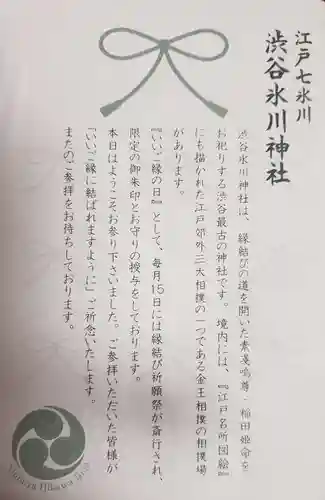 江戸七氷川
渋谷氷川神社
渋谷氷川神社は、縁結びの道を開いた素戔嗚尊・稲田姫命を
お祀りする渋谷最古の神社です。境内には、『江戸名所図絵』
にも描かれた江戸郊外三大相撲の一つである金王相撲の相撲場
があります。
『いいご縁の日』として、毎月15日には縁結び祈願祭が斎行され、
限定の御朱印とお守りの授与をしております。
本日はようこそお参り下さいました。ご参拝いただいた皆様が
「いいご縁に結ばれますように」ご祈念いたします。
またのご参拝をお待ちしております。
Shibuya Hikawa Shrine